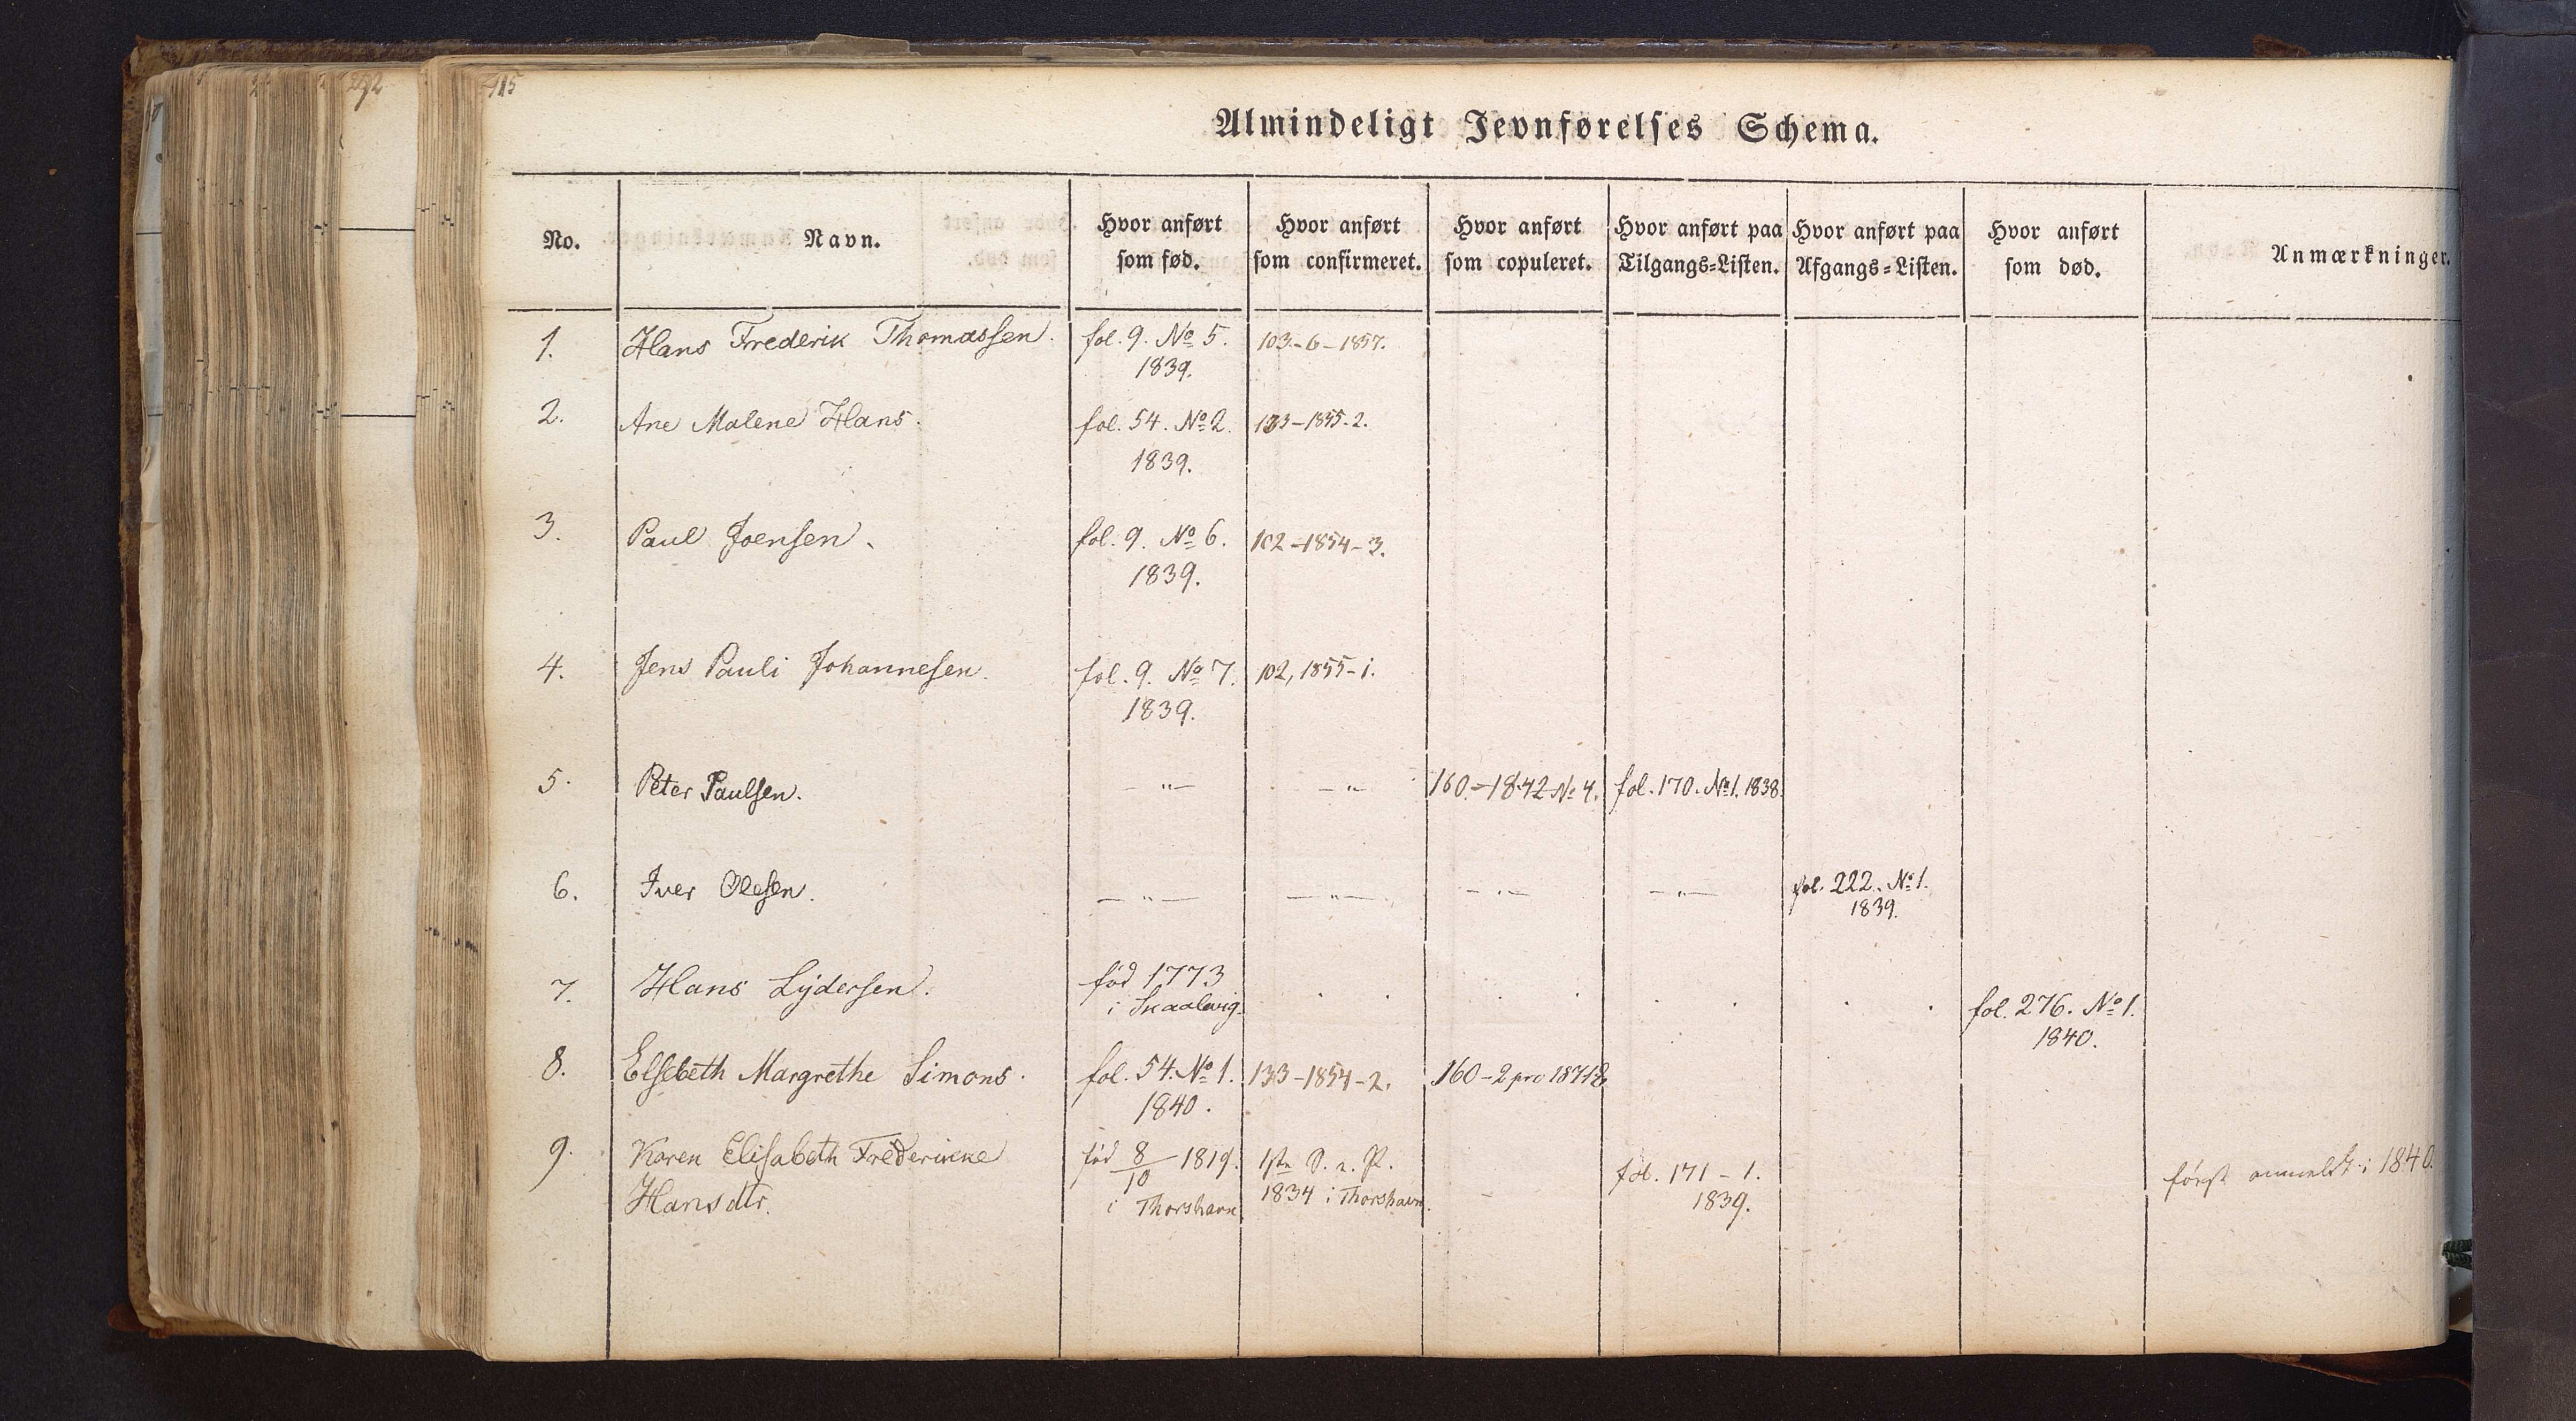 292
415
Almindeligt Jevnførelses Schema.
No.
Navn.
Hvor anført
som fød.
Hvor anført
som confirmeret.
Hvor anført
som copuleret.
Hvor anført paa
Tilgangs-Listen.
Hvor anført paa
Afgangs-Listen.
Hvor anført
som død.
Anmærkninger.
1. Hans Frederik Thomassen. fol. 9. No 5. 103-6-1857.
1839.
2. Ane Malene Hans. fol. 54. No 2. 133-1855-2.
1839.
3. Paul Joensen. fol. 9. No 6. 102-1854-3.
1839.
4. Jens Pauli Johannesen. fol. 9. No 7. 102, 1855-1.
1839.
5. Peter Paulsen. — " — — " — 160-1842 No 4. fol. 170. No 1. 1838.
6. Iver Olesen. — " — — " — — " — — " — fol. 222. No 1.
1839.
7. Hans Lydersen. fød 1773
i Skaalevig. fol. 276. No 1.
1840.
8. Elsebeth Margrethe Simons. fol. 54. No 1. 133-1854-2. 160-2 pro
1840.
9. Karen Elisabeth Frederikke fød 8/10 1819. 1ste S. e. P. fol. 171-1. først anmeldt i 1840.
Hansdtr. i Thorshavn 1834 i Thorshavn. 1839.